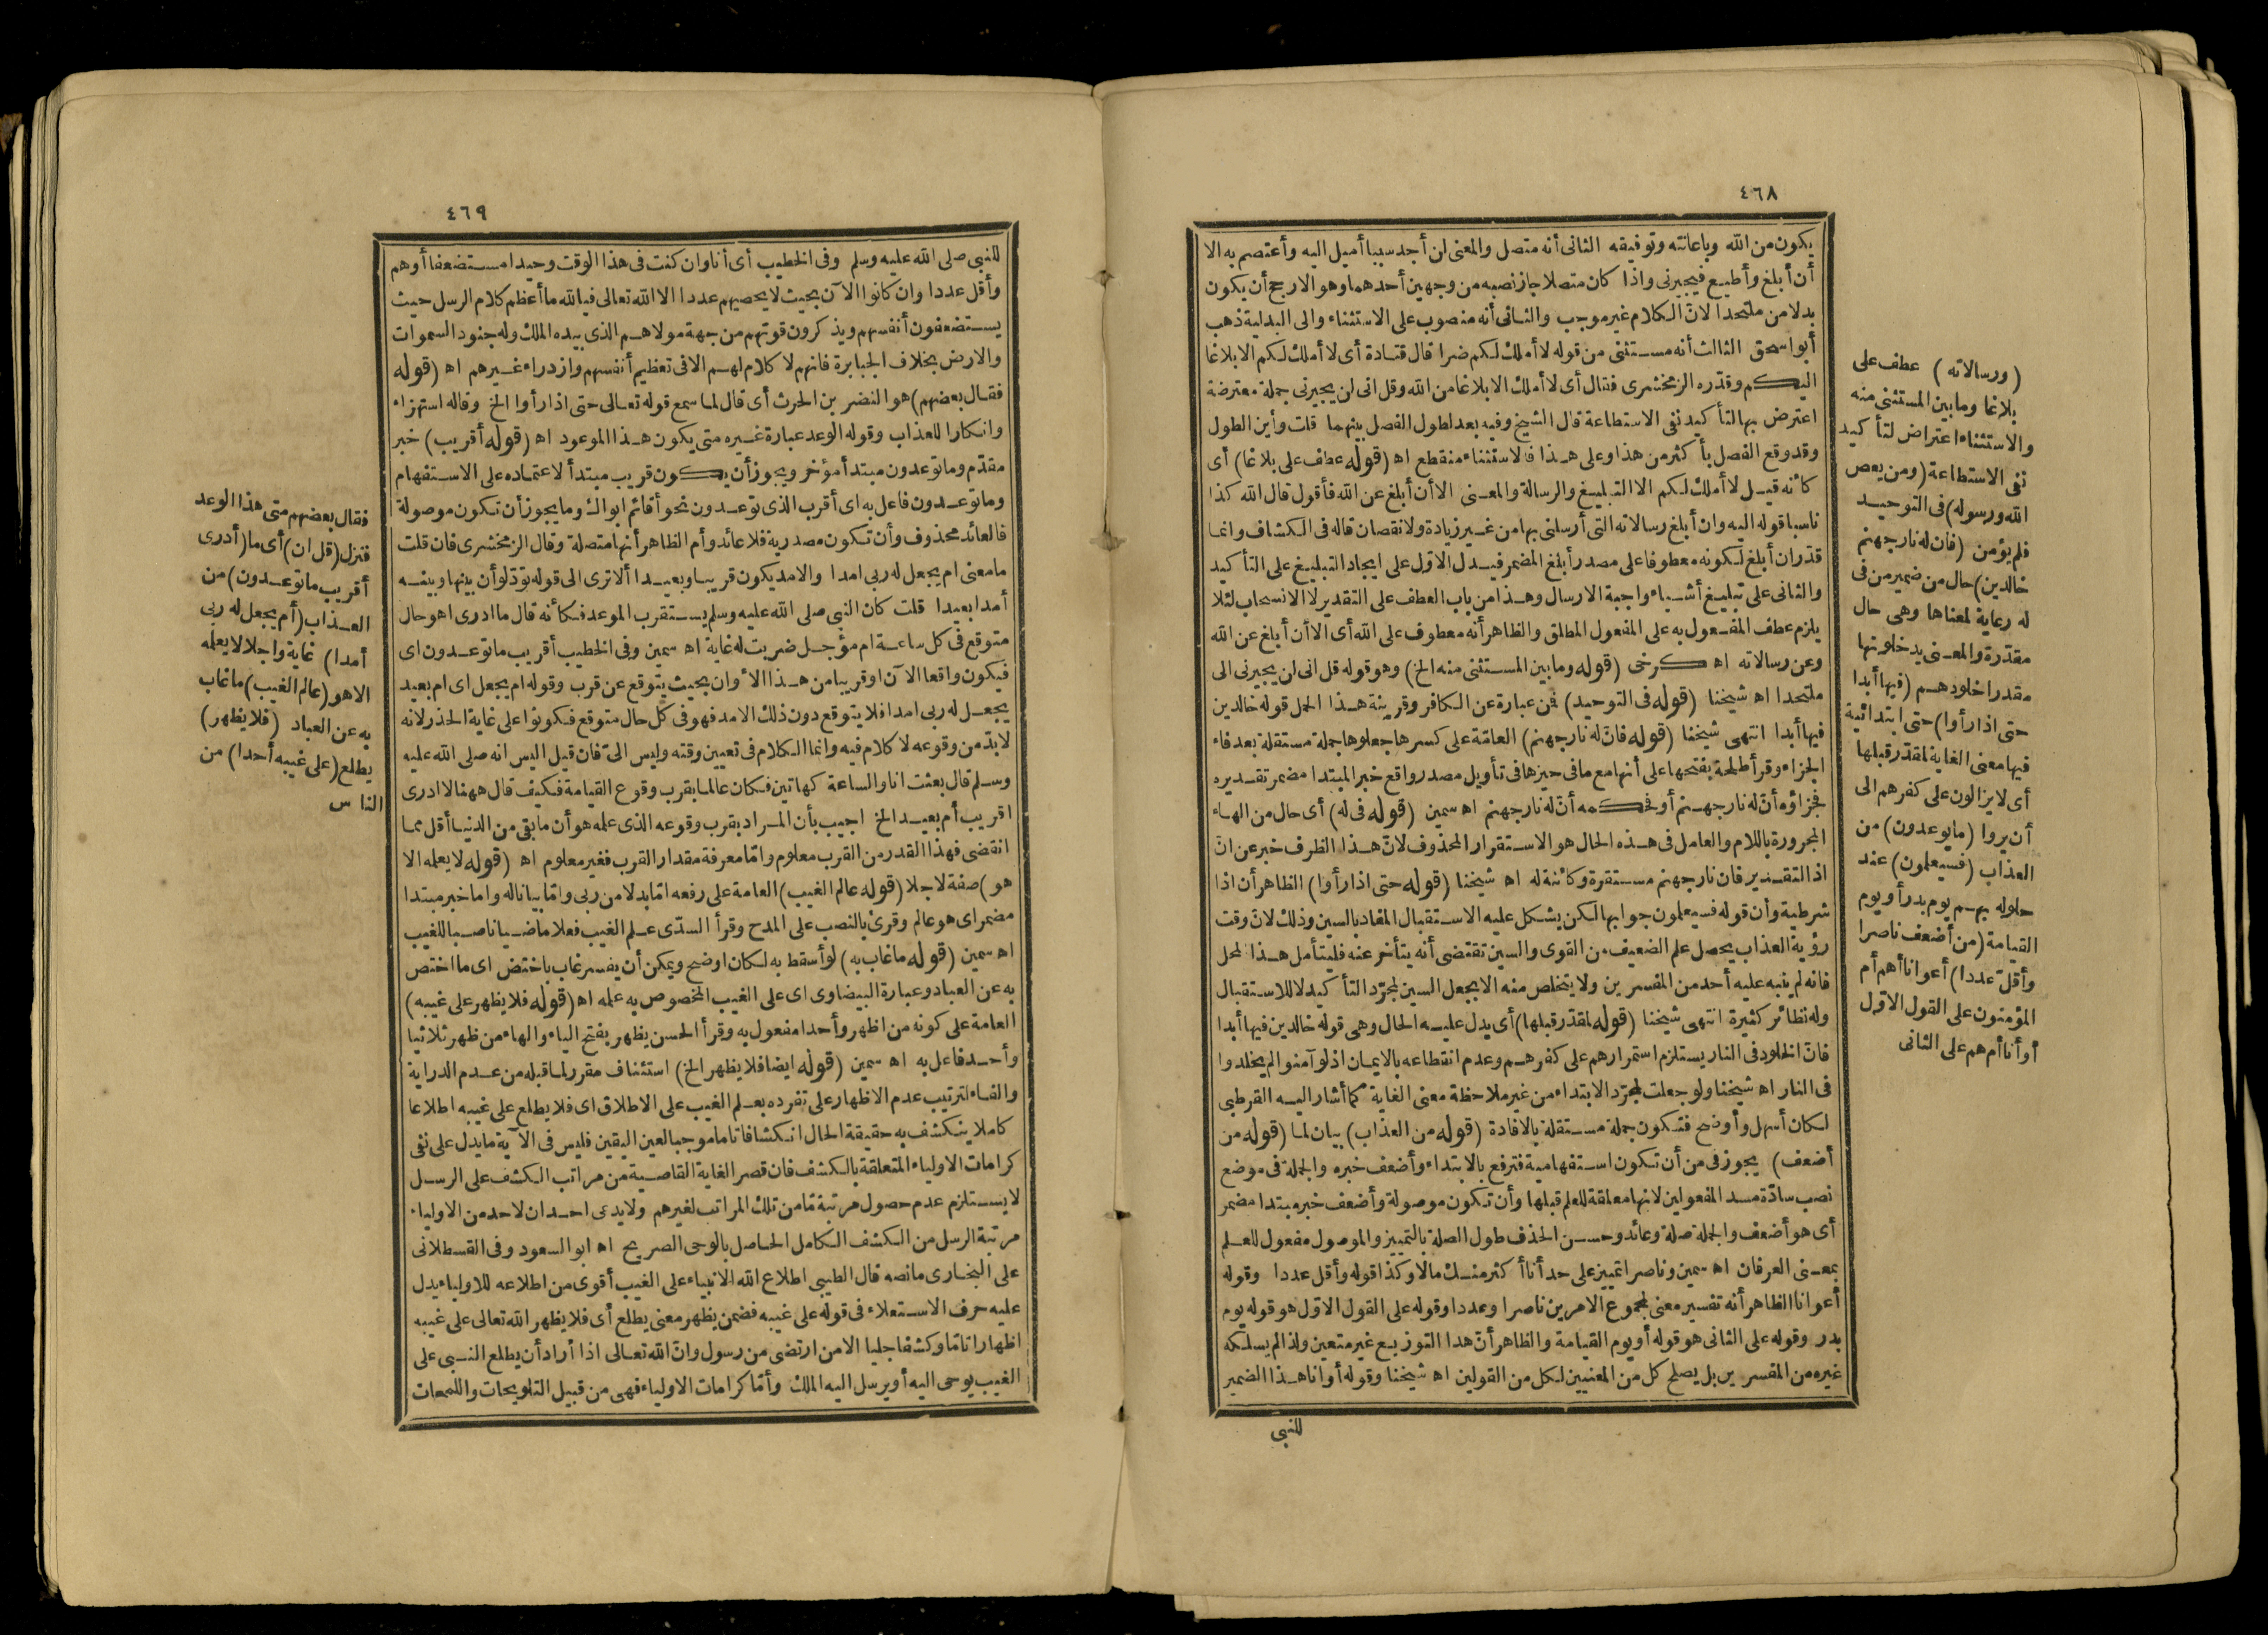 ٤٦٨
يكون من الله وباعانته وتوفيقه الثانى أنه متصل والمعنى لن أجد سببا أميل اليه وأعتصم به الا
أن أبلغ وأطيع فيجيرنى واذا كان متصلا جاز نصبه من وجهين أحدهما وهو الارجح أن يكون
بدلا من ملتحدا لانّ الكلام غير موجب والثانى أنه منصوب على الاستثناء والى البدلية ذهب
أبو اسحق الثالث أنه مستثنى من قوله لا أملك لكم ضرا قال قتادة أى لا أملك لكم الا بلاغا
اليكم وقدّره الزمخشرى فقال أى لا أملك الا بلاغا من الله وقل انى لن يجيرنى جملة معترضة
اعترض بها لتأكيد نفى الاستطاعة قال الشيخ وفيه بعد لطول الفصل بينهما قلت وأين الطول
وقد وقع الفصل بأكثر من هذا وعلى هذا فالاستثناء منقطع اه (قوله عطف على بلاغا) أى
كأنه قيل لا أملك لكم الا التبليغ والرسالة والمعنى الا أن أبلغ عن الله فأقول قال الله كذا
ناسبا قوله اليه وان أبلغ رسالاته التى أرسلنى بها من غير زيادة ولا نقصان قاله فى الكشاف وانما
قدّر ان أبلغ لكونه معطوفا على مصدر أبلغ المضمر فيدل الاوّل على ايجاد التبليغ على التأكيد
والثانى على تبليغ أشياء واجبة الارسال وهذا من باب العطف على التقدير لا الانسحاب لئلا
يلزم عطف المفعول به على المفعول المطلق والظاهر أنه معطوف على الله أى الا أن أبلغ عن الله
وعن رسالاته اه كرخى (قوله وما بين المستثنى منه الخ) وهو قوله قل انى لن يجيرنى الى
ملتحدا اه شيخنا (قوله فى التوحيد) فمن عبارة عن الكافر وقرينة هذا الحمل قوله خالدين
فيها أبدا انتهى شيخنا (قوله فانّ له نار جهنم) العامّة على كسرها جعلوها جملة مستقلة بعد فاء
الجزاء وقرأ طلحة بفتحها على أنها مع ما فى حيزها فى تأويل مصدر واقع خبر المبتدا مضمر تقديره
فجزاؤه أنّ له نار جهنم أو فحكمه أنّ له نار جهنم اه سمين (قوله فى له) أى حال من الهاء
المجرورة باللام والعامل فى هذه الحال هو الاستقرار المحذوف لانّ هذا الظرف خبر عن انّ
اذ التقدير فان نار جهنم مستقرة وكائنة له اه شيخنا (قوله حتى اذا رأوا) الظاهر أن اذا
شرطية وأن قوله فسيعلمون جوابها لكن يشكل عليه الاستقبال المفاد بالسين وذلك لانّ وقت
رؤية العذاب يحصل علم الضعيف من القوى والسين تقتضى أنه يتأخر عنه فليتأمل هذا المحل
فانه لم ينبه عليه أحد من المفسرين ولا يتخلص منه الا بجعل السين لمجرّد التأكيد لا للاستقبال
وله نظائر كثيرة انتهى شيخنا (قوله لمقدّر قبلها) أى يدل عليه الحال وهى قوله خالدين فيها أبدا
فانّ الخلود فى النار يستلزم استمرارهم على كفرهم وعدم انقطاعه بالايمان اذ لو آمنوا لم يخلدوا
فى النار اه شيخنا ولو جعلت لمجرّد الابتداء من غير ملاحظة معنى الغاية كما أشار اليه القرطبى
لكان أسهل وأوضح فتكون جملة مستقلة بالافادة (قوله من العذاب) بيان لما (قوله من
أضعف) يجوز فى من أن تكون استفهامية فترفع بالابتداء وأضعف خبره والجملة فى موضع
نصب سادّة مسد المفعولين لانها معلقة للعلم قبلها وأن تكون موصولة وأضعف خبر مبتدا مضمر
أى هو أضعف والجملة صلة وعائد وحسن الحذف طول الصلة بالتمييز والموصول مفعول للعلم
بمعنى العرفان اه سمين وناصرا تمييز على حد أنا أكثر منك مالا وكذا قوله وأقل عددا وقوله
أعوانا الظاهر أنه تفسير معنى لمجموع الامرين ناصرا وعددا وقوله على القول الاوّل هو قوله يوم
بدر وقوله على الثانى هو قوله أو يوم القيامة والظاهر أنّ هذا التوزيع غير متعين ولذا لم يسلكه
غيره من المفسرين بل يصلح كل من المعنيين لكل من القولين اه شيخنا وقوله أو أنا هذا الضمير
للنبى
(ورسالاته) عطف على
بلاغا وما بين المستثنى منه
والاستثناء اعتراض لتأكيد
نفى الاستطاعة (ومن يعص
الله ورسوله) فى التوحيد
فلم يؤمن (فان له نار جهنم
خالدين) حال من ضمير من فى
له رعاية لمعناها وهى حال
مقدّرة والمعنى يدخلونها
مقدرا خلودهم (فيها أبدا
حتى اذا رأوا) حتى ابتدائية
فيها معنى الغاية لمقدّر قبلها
أى لا يزالون على كفرهم الى
أن يروا (ما يوعدون) من
العذاب (فسيعلمون) عند
حلوله بهم يوم بدر أو يوم
القيامة (من أضعف ناصرا
وأقلّ عددا) أعوانا أهم أم
المؤمنون على القول الاوّل
أو أنا أم هم على الثانى
٤٦٩
للنبى صلى الله عليه وسلم وفى الخطيب أى أنا وان كنت فى هذا الوقت وحيدا مستضعفا أو هم
وأقل عددا وان كانوا الآن بحيث لا يحصيهم عددا الا الله تعالى فيالله ما أعظم كلام الرسل حيث
يستضعفون أنفسهم ويذكرون قوتهم من جهة مولاهم الذى بيده الملك وله جنود السموات
والارض بخلاف الجبابرة فانهم لا كلام لهم الا فى تعظيم أنفسهم وازدراء غيرهم اه (قوله
فقال بعضهم) هو النضر بن الحرث أى قال لما سمع قوله تعالى حتى اذا رأوا الخ وقاله استهزاء
وانكارا للعذاب وقوله الوعد عبارة غيره متى يكون هذا الموعود اه (قوله أقريب) خبر
مقدّم وما توعدون مبتدأ مؤخر ويجوز أن يكون قريب مبتدأ لاعتماده على الاستفهام
وما توعدون فاعل به اى أقرب الذى توعدون نحو أقائم ابواك وما يجوز أن تكون موصولة
فالعائد محذوف وأن تكون مصدرية فلا عائد وأم الظاهر أنها متصلة وقال الزمخشرى فان قلت
ما معنى ام يجعل له ربى امدا والامد يكون قريبا وبعيدا ألا ترى الى قوله تودّ لو أن بينها وبينه
أمدا بعيدا قلت كان النبى صلى الله عليه وسلم يستقرب الموعد فكأنه قال ما ادرى اهو حال
متوقع فى كل ساعة ام مؤجل ضربت له غاية اه سمين وفى الخطيب أقريب ما توعدون اى
فيكون واقعا الآن او قريبا من هذا الأوان بحيث يتوقع عن قرب وقوله ام يجعل اى ام بعيد
يجعل له ربى امدا فلا يتوقع دون ذلك الامد فهو فى كل حال متوقع فكونوا على غاية الحذر لانه
لا بدّ من وقوعه لا كلام فيه وانما الكلام فى تعيين وقته وليس الىّ فان قيل اليس انه صلى الله عليه
وسلم قال بعثت انا والساعة كهاتين فكان عالما بقرب وقوع القيامة فكيف قال ههنا لا ادرى
اقريب أم بعيد الخ اجيب بأن المراد بقرب وقوعه الذى علمه هو أن ما بقى من الدنيا أقل مما
انقضى فهذا القدر من القرب معلوم وامّا معرفة مقدار القرب فغير معلوم اه (قوله لا يعلمه الا
هو) صفة لاجلا (قوله عالم الغيب) العامة على رفعه امّا بدلا من ربى وامّا بيانا له واما خبر مبتدا
مضمر اى هو عالم وقرئ بالنصب على المدح وقرأ السدّى علم الغيب فعلا ماضيا ناصبا للغيب
اه سمين (قوله ما غاب به) لو أسقط به لكان اوضح ويمكن أن يفسر غاب باختص اى ما اختص
به عن العباد وعبارة البيضاوى اى على الغيب المخصوص به علمه اه (قوله فلا يظهر على غيبه)
العامة على كونه من اظهر وأحدا مفعول به وقرأ الحسن يظهر بفتح الياء والهاء من ظهر ثلاثيا
وأحد فاعل به اه سمين (قوله ايضا فلا يظهر الخ) استئناف مقرر لما قبله من عدم الدراية
والفاء لترتيب عدم الاظهار على تفرده بعلم الغيب على الاطلاق اى فلا يطلع على غيبه اطلاعا
كاملا ينكشف به حقيقة الحال انكشافا تاما موجبا لعين اليقين فليس فى الآية ما يدل على نفى
كرامات الاولياء المتعلقة بالكشف فان قصر الغاية القاصية من مراتب الكشف على الرسل
لا يستلزم عدم حصول مرتبة مّا من تلك المراتب لغيرهم ولا يدعى احد ان لاحد من الاولياء
مرتبة الرسل من الكشف الكامل الحاصل بالوحى الصريح اه ابو السعود وفى القسطلانى
على البخارى ما نصه قال الطيبى اطلاع الله الانبياء على الغيب أقوى من اطلاعه للاولياء يدل
عليه حرف الاستعلاء فى قوله على غيبه فضمن يظهر معنى يطلع أى فلا يظهر الله تعالى على غيبه
اظهارا تامّا وكشفا جليا الا من ارتضى من رسول وانّ الله تعالى اذا أراد أن يطلع النبى على
الغيب يوحى اليه أو يرسل اليه الملك وأمّا كرامات الاولياء فهى من قبيل التلويحات واللمحات
فقال بعضهم متى هذا الوعد
فنزل (قل ان) أى ما (أدرى
أقريب ما توعدون) من
العذاب (أم يجعل له ربى
أمدا) غاية واجلا لا يعلمه
الا هو (عالم الغيب) ما غاب
به عن العباد (فلا يظهر)
يطلع (على غيبه أحدا) من
الناس